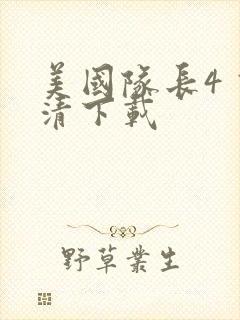 美國隊長4
清下載
野草叢生